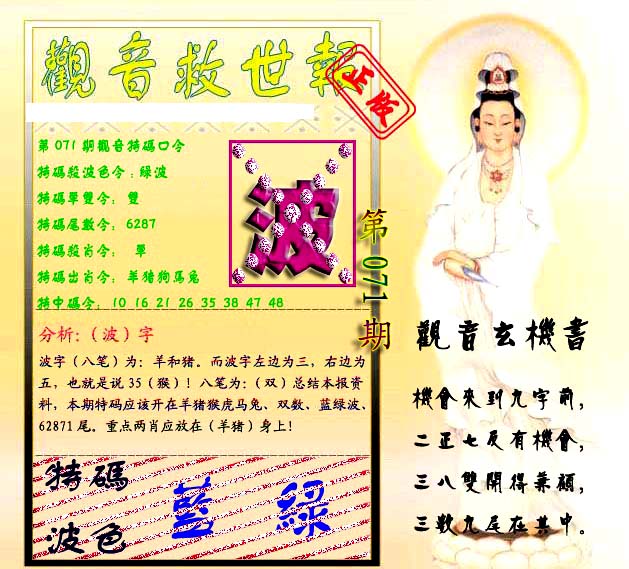 觀音救世報
正版
第 071 期觀音特碼口令
特碼殺波色令：綠波
特碼單雙令： 雙
特碼尾數令： 6287
特碼殺肖令： 單
特碼出肖令： 羊豬狗馬兔
特中碼令： 10 16 21 26 35 38 47 48
波
第 071 期
分析:（波）字
波字（八笔）为：羊和猪。而波字左边为三，右边为
五，也就是说 35（猴）！八笔为：（双）总结本报资
料，本期特码应该开在羊猪猴虎马兔、双数、蓝绿波、
62871 尾。重点两肖应放在（羊猪）身上！
特碼
波色
藍 綠
觀音玄機書
機會來到九字前，
二正七反有機會，
三八雙開得兼顧，
三數九尾在其中。